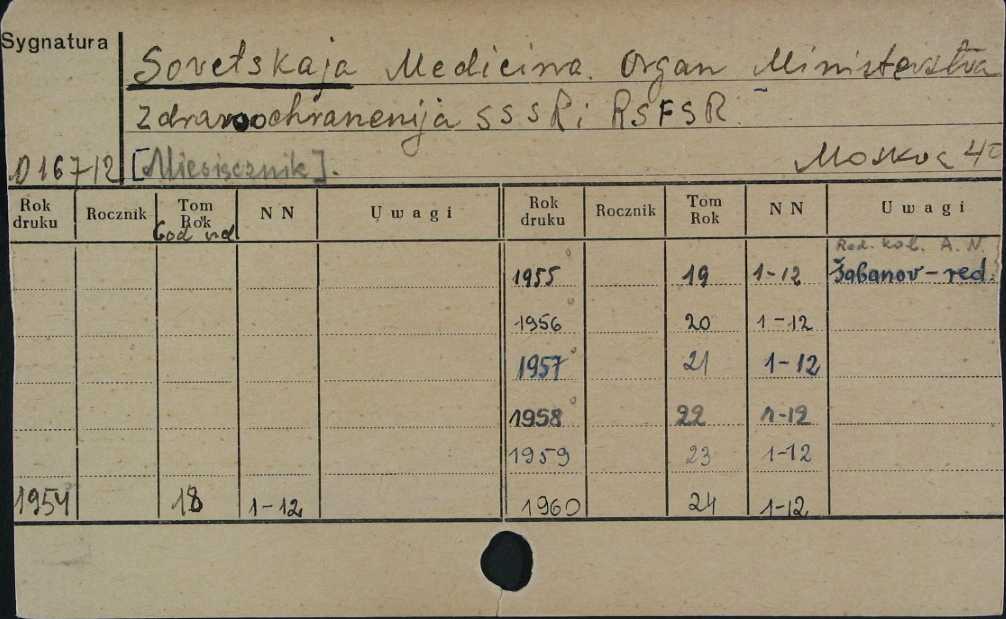 Sygnatura
Sovetskaja Medicina. Organ Ministerstva
Zdravoochranenija SSSR i RSFSR.
D 167/12 [Miesięcznik]. Moskva 4°
Rok druku Rocznik Tom Rok NN Uwagi Rok druku Rocznik Tom Rok NN Uwagi
God izd
Red. kol. A. N.
1955 19 1-12 Šabanov - red.
1956 20 1-12
1957 21 1-12
1958 22 1-12
1959 23 1-12
1954 18 1-12 1960 24 1-12